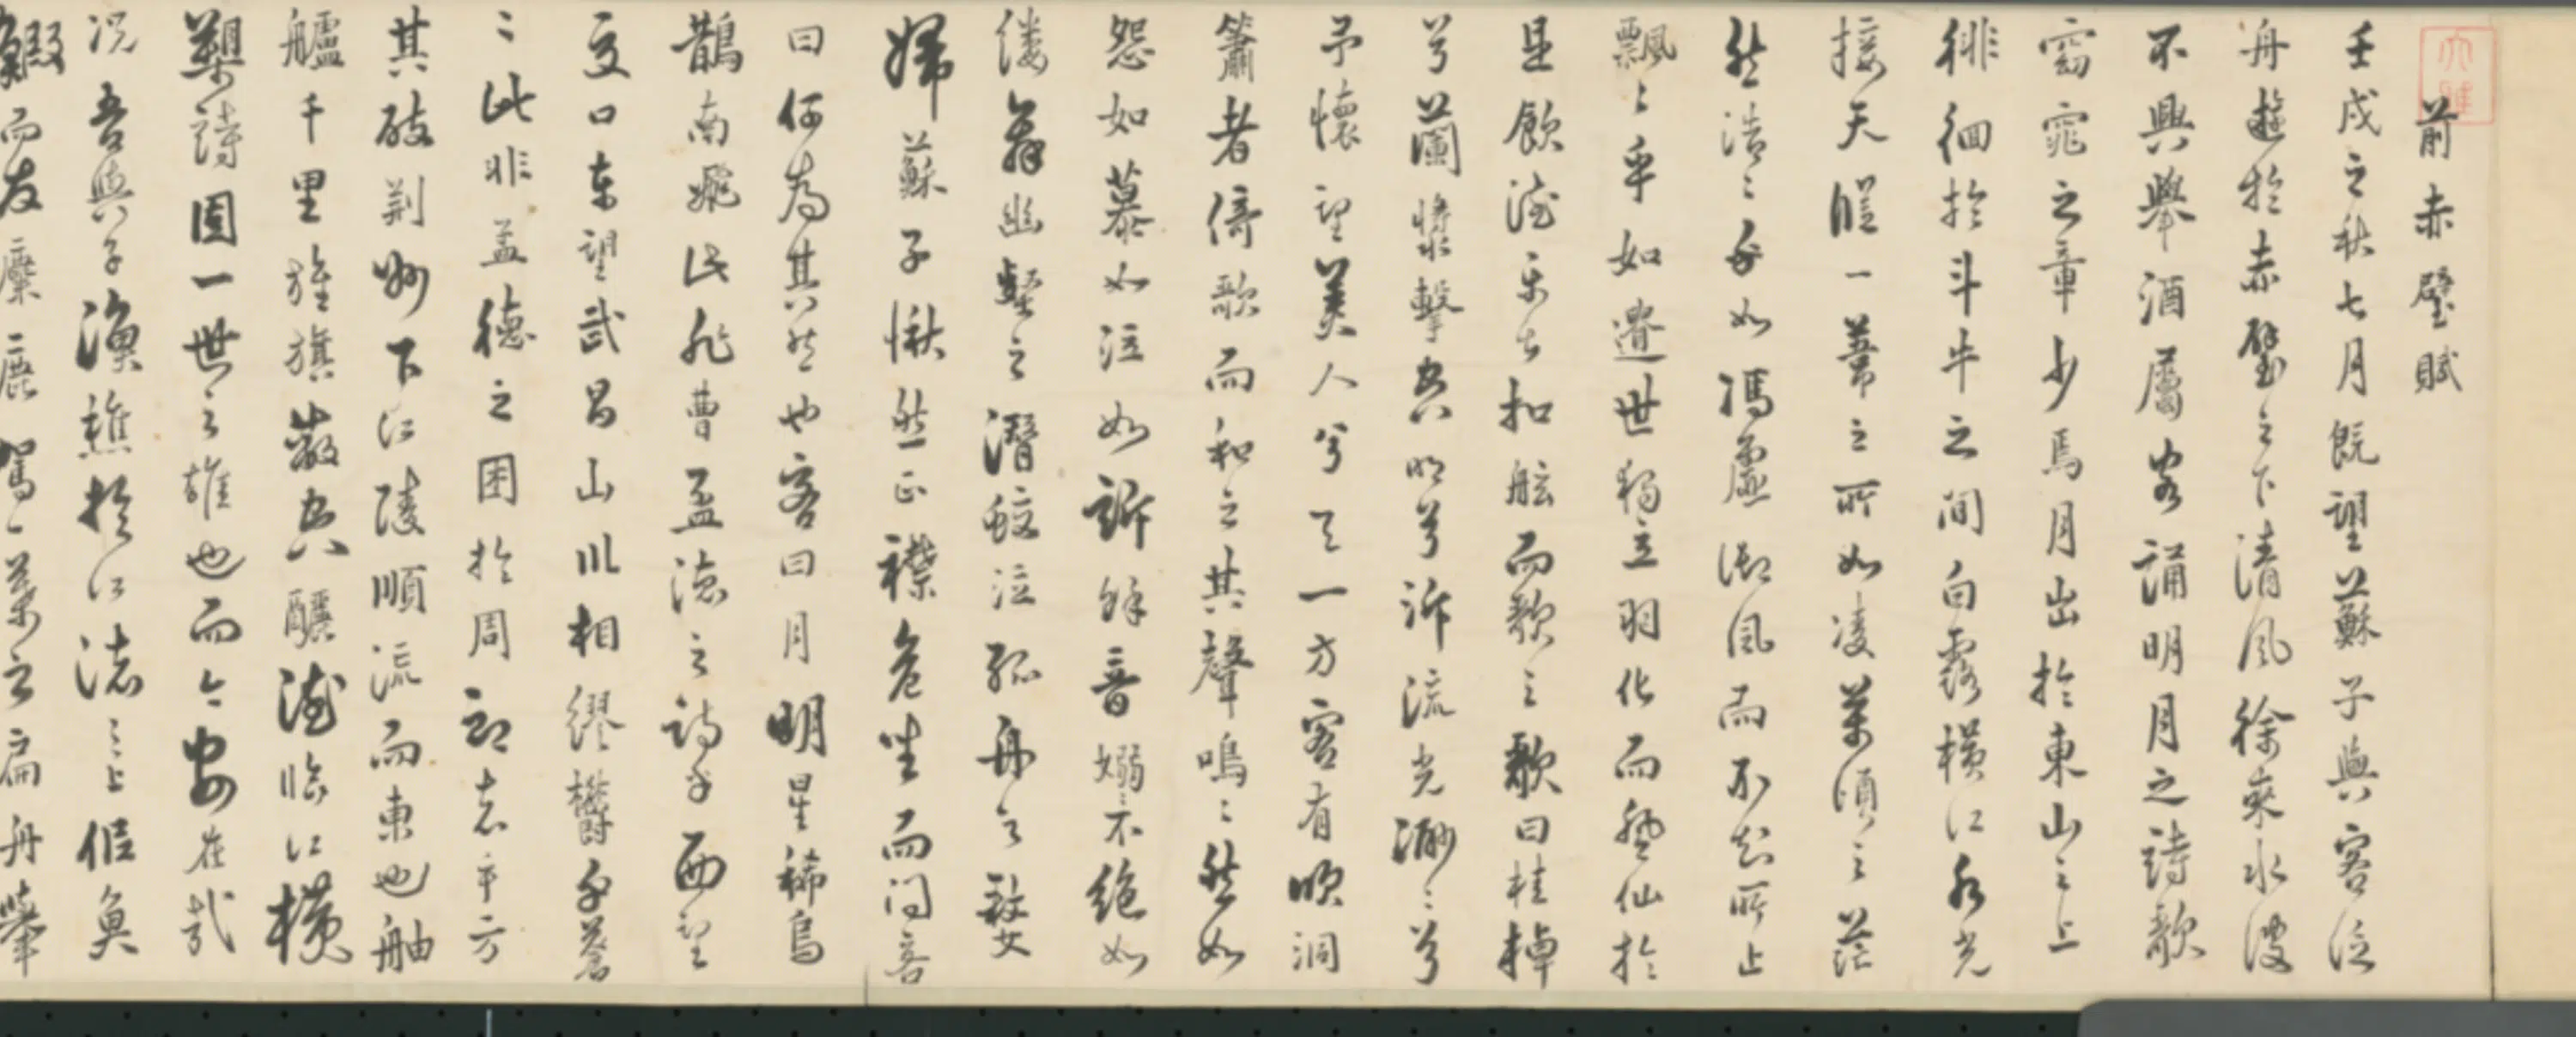 前赤壁賦
壬戌之秋七月既望蘇子與客泛
舟遊於赤壁之下清風徐來水波
不興舉酒屬客誦明月之詩歌
窈窕之章少焉月出於東山之上
徘徊於斗牛之間白露橫江水光
接天縱一葦之所如凌萬頃之茫
然浩〻乎如馮虛御風而不知所止
飄〻乎如遺世獨立羽化而登仙於
是飲酒樂甚扣舷而歌之歌曰桂棹
兮蘭槳擊空明兮泝流光渺〻兮
予懷望美人兮天一方客有吹洞
簫者倚歌而和之其聲鳴〻然如
怨如慕如泣如訴餘音嫋〻不絕如
縷舞幽壑之潛蛟泣孤舟之嫠
婦蘇子愀然正襟危坐而問客
曰何為其然也客曰月明星稀烏
鵲南飛此非曹孟德之詩乎西望
夏口東望武昌山川相繆鬱乎蒼
〻此非孟德之困於周郎者乎方
其破荊州下江陵順流而東也舳
艫千里旌旗蔽空釃酒臨江橫
槊詩固一世之雄也而今安在哉
況吾與子漁樵於江渚之上侶魚
鰕而友麋鹿駕一葉之扁舟舉